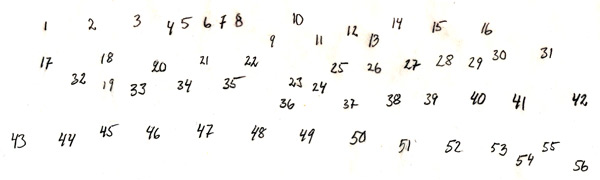 1 2 3 4 5 6 7 8 9 10 11 12 13 14 15 16
17 18 19 20 21 22 23 24 25 26 27 28 29 30 31
32 33 34 35 36 37 38 39 40 41 42
43 44 45 46 47 48 49 50 51 52 53 54 55 56